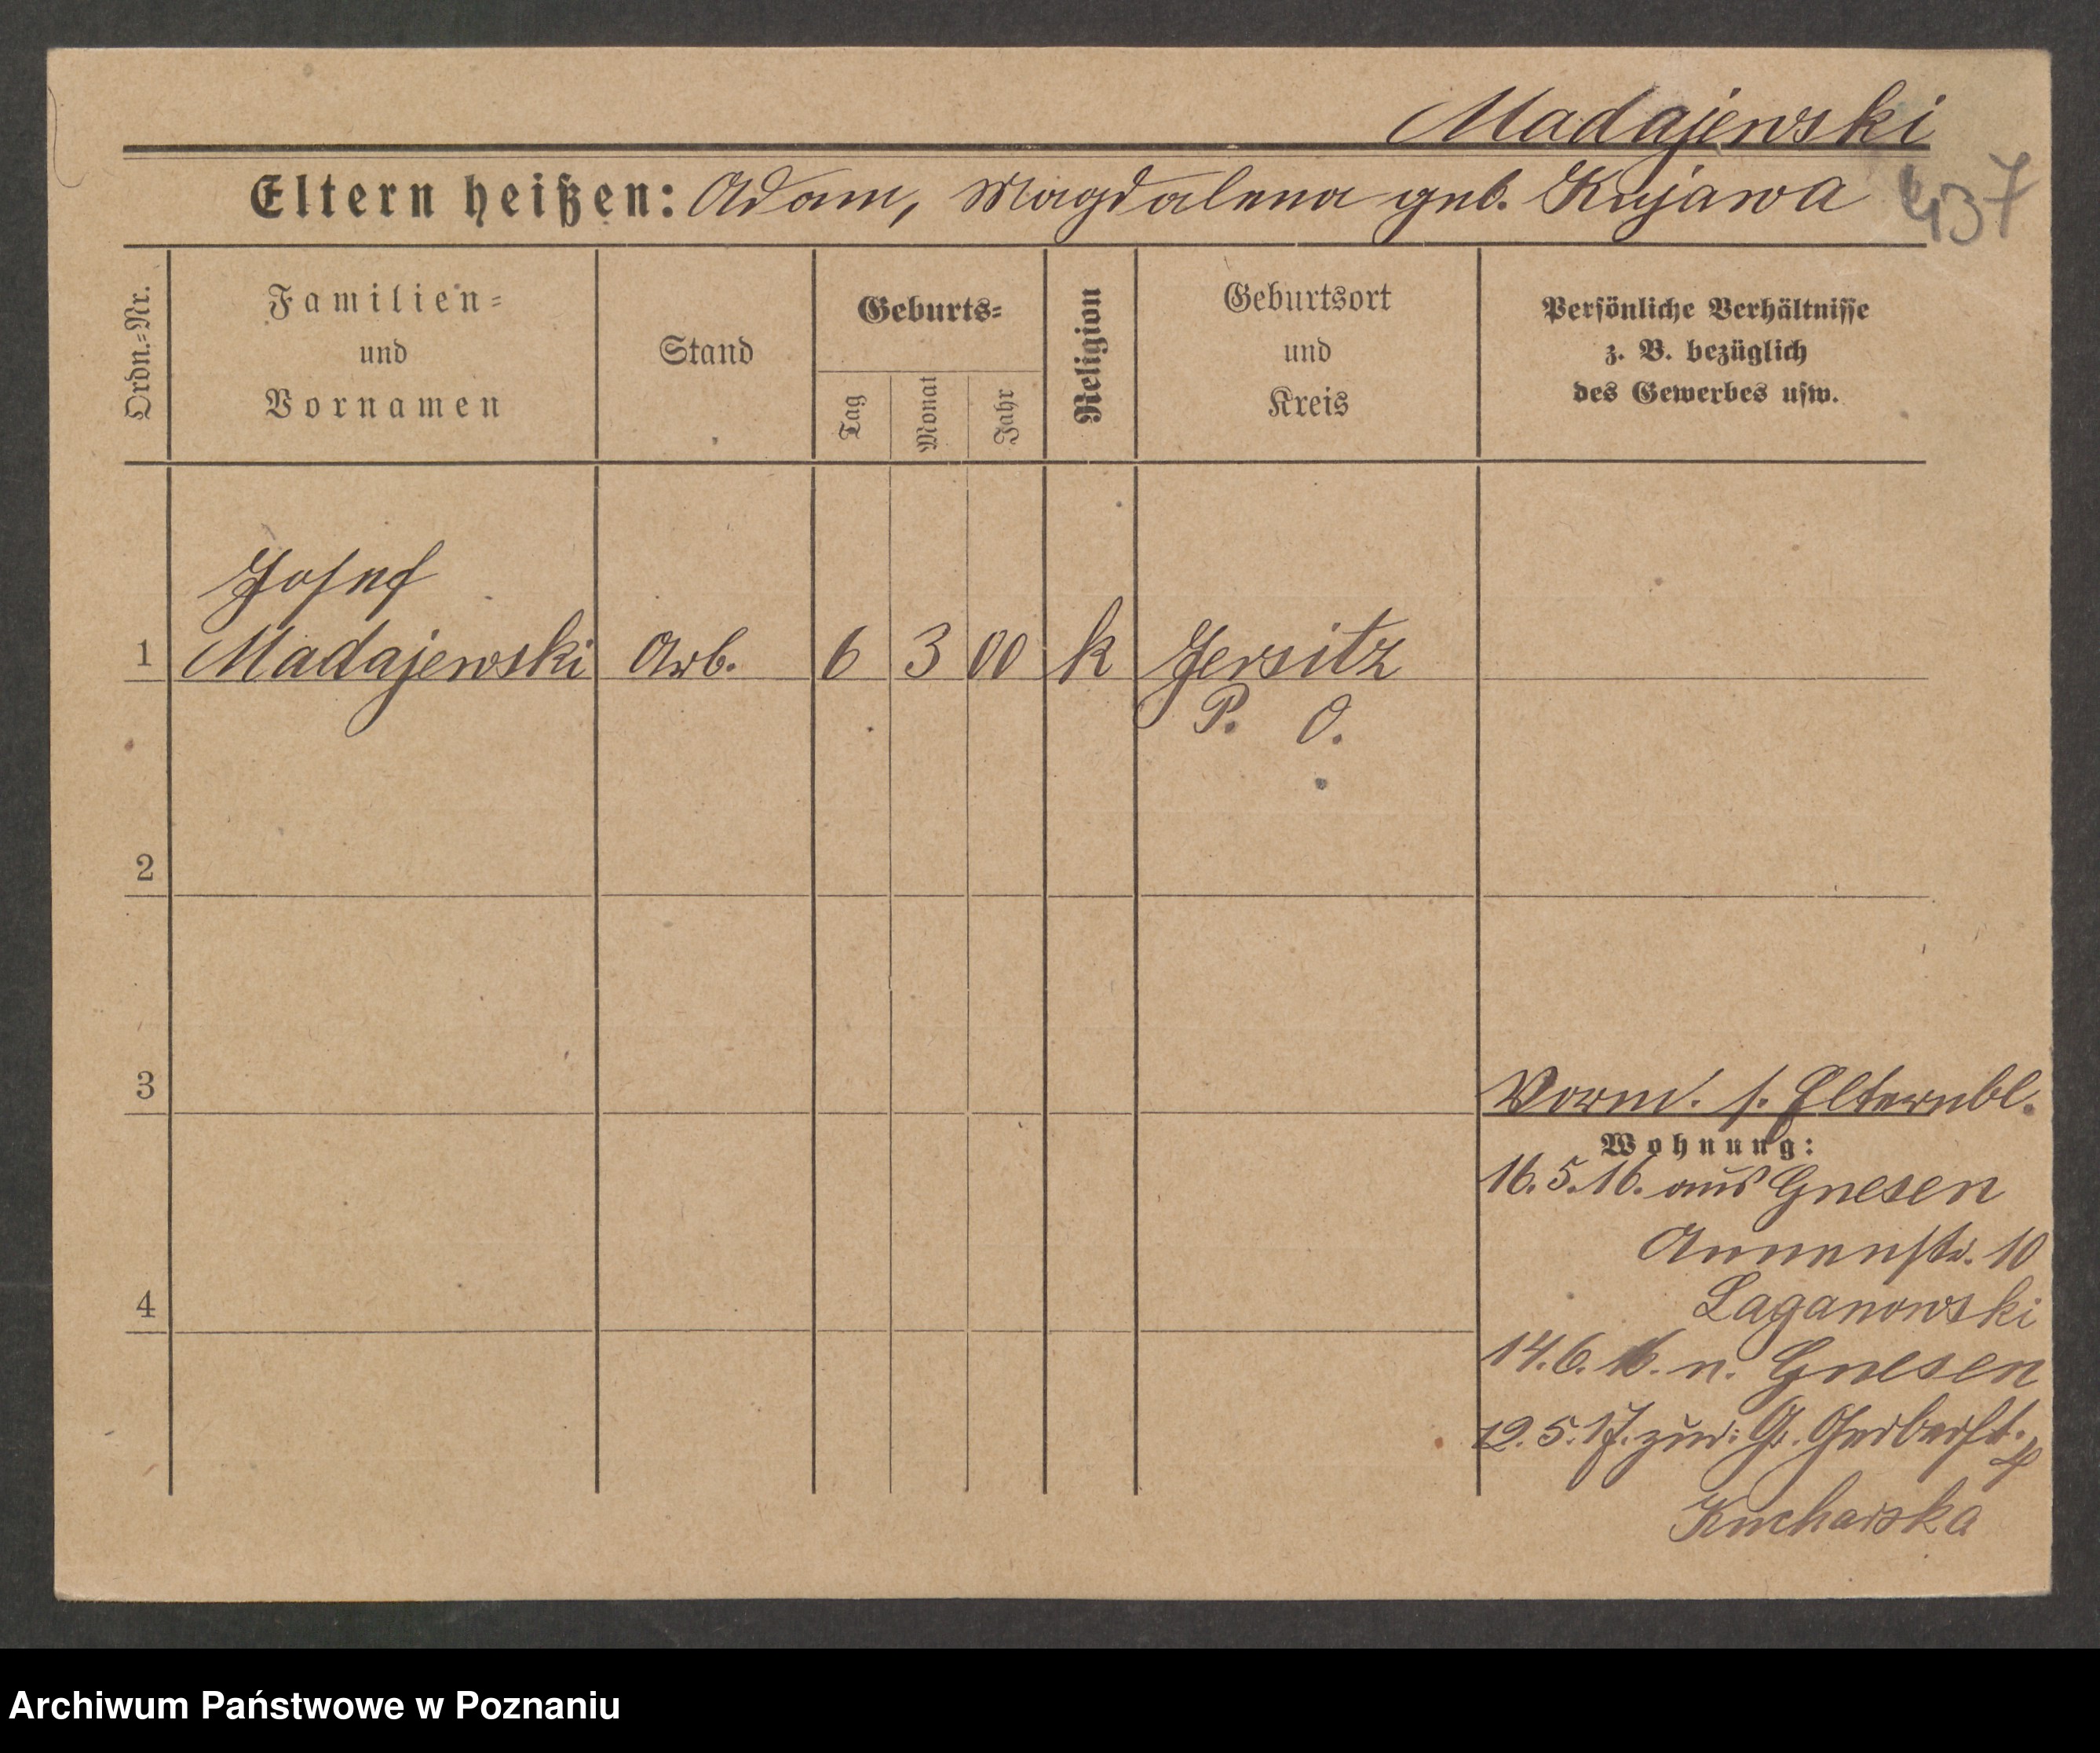 Madajewski
Eltern heißen: Adam, Magdalena geb. Kujawa 437
Ordn.=Nr.
Familien=
und
Vornamen
Stand
Geburts=
Tag
Monat
Jahr
Religion
Geburtsort
und
Kreis
Persönliche Verhältnisse
z. B. bezüglich
des Gewerbes usw.
Josef
1 Madajewski Arb. 6 3 00 k Jersitz
P. O.
2
3
Vorm. s. Elternbl.
Wohnung:
16.5.16. aus Gnesen
Annenstr. 10
Laganowski
4
14.6.16. n. Gnesen
12.5.17. zur: Gr. Gerberst.
Kucharska
Archiwum Państwowe w Poznaniu